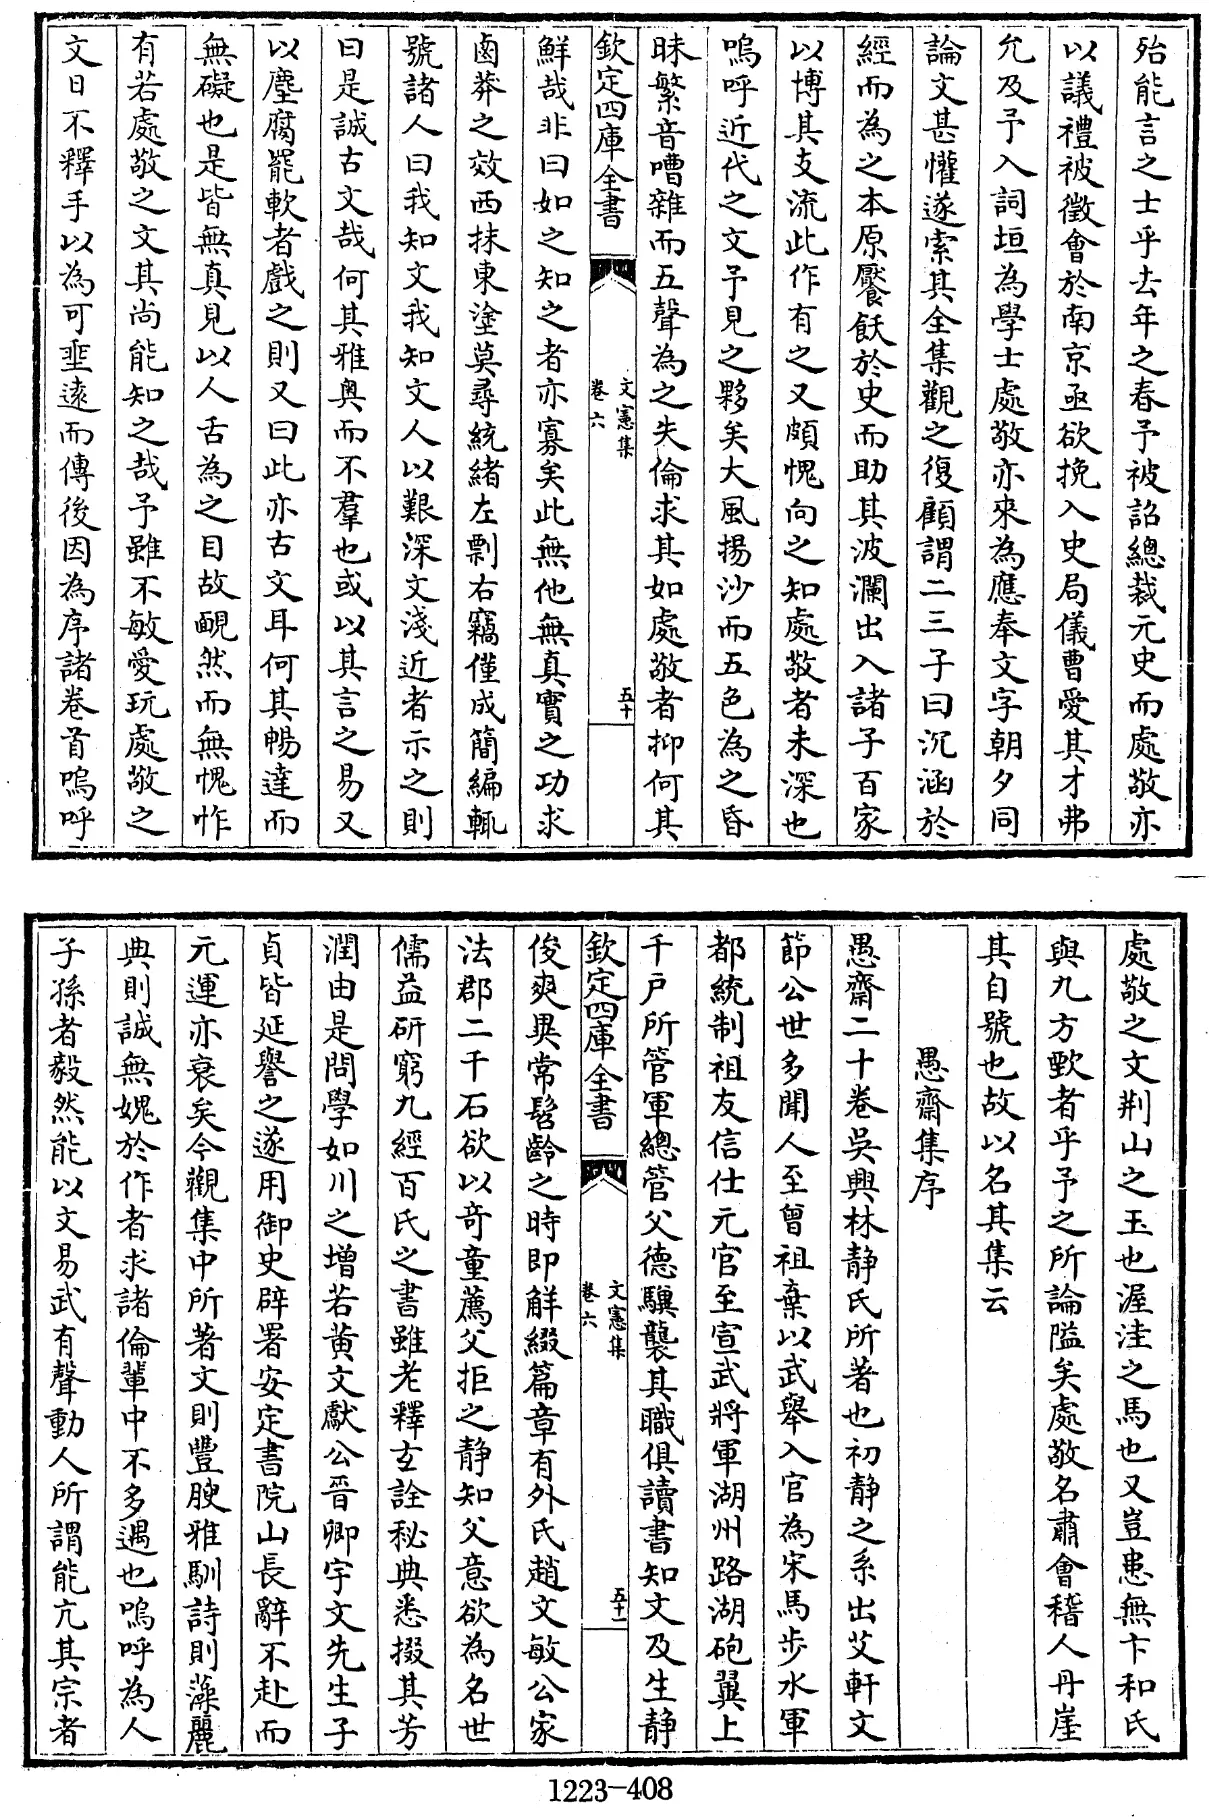 殆能言之士乎去年之春予被詔總裁元史而處敬亦
以議禮被徵會於南京亟欲挽入史局儀曹愛其才弗
允及予入詞垣為學士處敬亦來為應奉文字朝夕同
論文甚懽遂索其全集觀之復顧謂二三子曰沉涵於
經而為之本原饜飫於史而助其波瀾出入諸子百家
以博其支流此作有之又頗愧向之知處敬者未深也
嗚呼近代之文予見之夥矣大風揚沙而五色為之昏
眛繁音嘈雜而五聲為之失倫求其如處敬者抑何其
欽定四庫全書
文憲集
卷六
五十
鮮哉非曰如之知之者亦寡矣此無他無真實之功求
鹵莽之效西抹東塗莫尋統緒左剽右竊僅成簡編輒
號諸人曰我知文我知文人以艱深文淺近者示之則
曰是誠古文哉何其雅奥而不羣也或以其言之易又
以塵腐罷軟者戲之則又曰此亦古文耳何其暢達而
無礙也是皆無真見以人舌為之目故靦然而無愧怍
有若處敬之文其尚能知之哉予雖不敏愛玩處敬之
文日不釋手以為可垂遠而傳後因為序諸卷首嗚呼
處敬之文荆山之玉也渥洼之馬也又豈患無卞和氏
與九方歅者乎予之所論隘矣處敬名肅會稽人丹崖
其自號也故以名其集云
愚齋集序
愚齋二十卷吳興林静氏所著也初静之系出艾軒文
節公世多聞人至曾祖棄以武舉入官為宋馬步水軍
都統制祖友信仕元官至宣武將軍湖州路湖砲翼上
千戸所管軍總管父德驥襲其職俱讀書知文及生静
欽定四庫全書
文憲集
卷六
五十一
俊爽異常髫齡之時即觧綴篇章有外氏趙文敏公家
法郡二千石欲以竒童薦父拒之静知父意欲為名世
儒益研窮九經百氏之書雖老釋玄詮秘典悉掇其芳
潤由是問學如川之增若黄文獻公晉卿宇文先生子
貞皆延譽之遂用御史辟署安定書院山長辭不赴而
元運亦衰矣今觀集中所著文則豐腴雅馴詩則藻麗
典則誠無媿於作者求諸倫輩中不多遇也嗚呼為人
子孫者毅然能以文易武有聲動人所謂能亢其宗者
1223-408